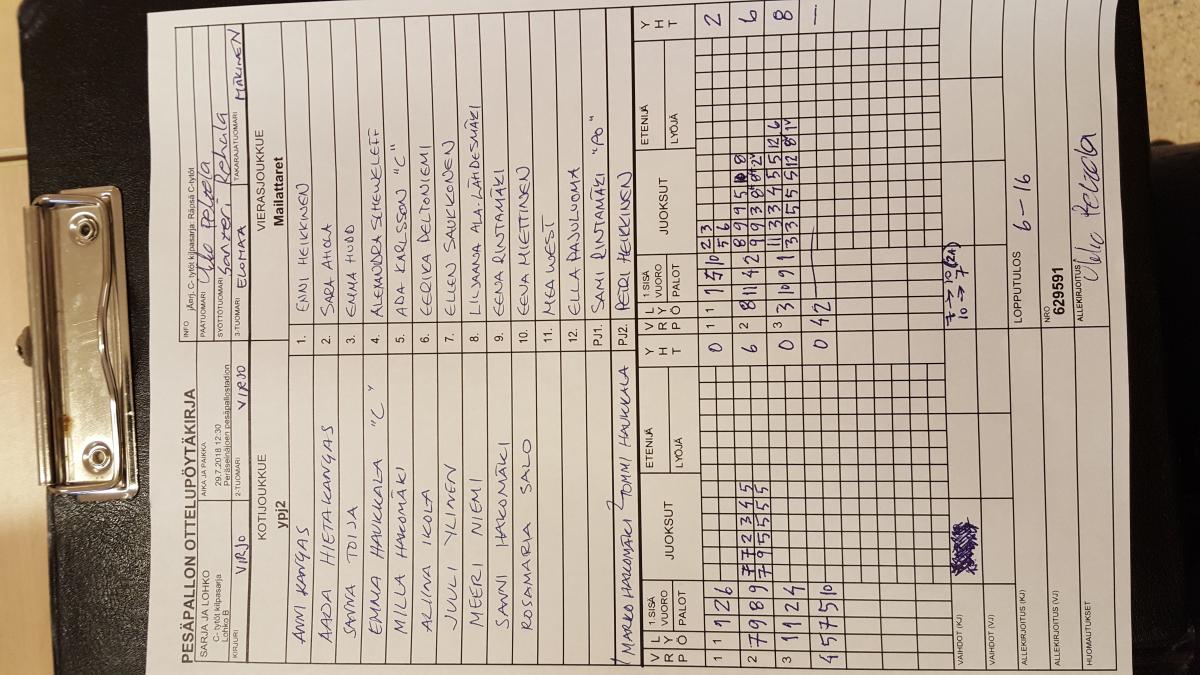 PESÄPALLON OTTELUPÖYTÄKIRJA
SARJA JA LOHKO
C- tytöt kilpasarja
Lohko B
AIKA JA PAIKKA
29.7.2018 12:30
Peräseinäjoen pesäpallostadion
INFO jÄerj. C- tytöt kilpasarja: Räpsä C-tytöt
PÄÄTUOMARI Ulo Pelzola
SYÖTTÖTUOMARI Santeri Rehala
KIRJURI VIRJO
2-TUOMARI VIRJO
3-TUOMARI ELOMAA
TAKARAJATUOMARI MÄKINEN
KOTIJOUKKUE
ypj2
VIERASJOUKKUE
Mailattaret
ANNI KANGAS 1. ENNI HEIKKINEN
AADA HIETAKANGAS 2. SARA AHOLA
SANNA TOIJA 3. EMMA HUDD
EMMA HAUKKALA "C" 4. ALEXANDRA SCHEWELEFF
MILLA HAKOMÄKI 5. ADA KARLSSON "C"
ALIINA IKOLA 6. EERIKA PELTONIEMI
JUULI YLINEN 7. ELLEN SAUKKONEN
MEERI NIEMI 8. LILJAANA ALA-LÄHDESMÄKI
SANNI HAKOMÄKI 9. EENA RINTAMÄKI
ROSAMARIA SALO 10. EEVA MIETTINEN
11. MEA WEST
12. ELLA PAJULUOMA
PJ1. SAMI RINTAMÄKI "PO"
MARKO HAKOMÄKI TOMMI HAUKKALA PJ2. PETRI HEIKKINEN
VRP LYÖ 1.SISÄ VUORO PALOT JUOKSUT ETENIJÄ LYÖJÄ YHT
VRP LYÖ 1.SISÄ VUORO PALOT JUOKSUT ETENIJÄ LYÖJÄ YHT
1 1 1 2 6 0
1 1 1 5 10 2 3 2
5 6
2 7 9 8 9 7 7 2 3 4 5 6
7 9 5 5 5 5
2 8 11 4 2 8 9 9 5 6
9 9 3
3 1 1 2 4 0
3 3 10 9 1 11 3 3 4 5 5 12 6 8
3 3 5 5 5 12
4 5 7 5 10 0
4 2 —
VAIHDOT (KJ) 7 → 10 (2A)
10 → 7
VAIHDOT (VJ)
ALLEKIRJOITUS (KJ)
LOPPUTULOS 6 - 16
ALLEKIRJOITUS (VJ)
NRO
629591
HUOMAUTUKSET
ALLEKIRJOITUS